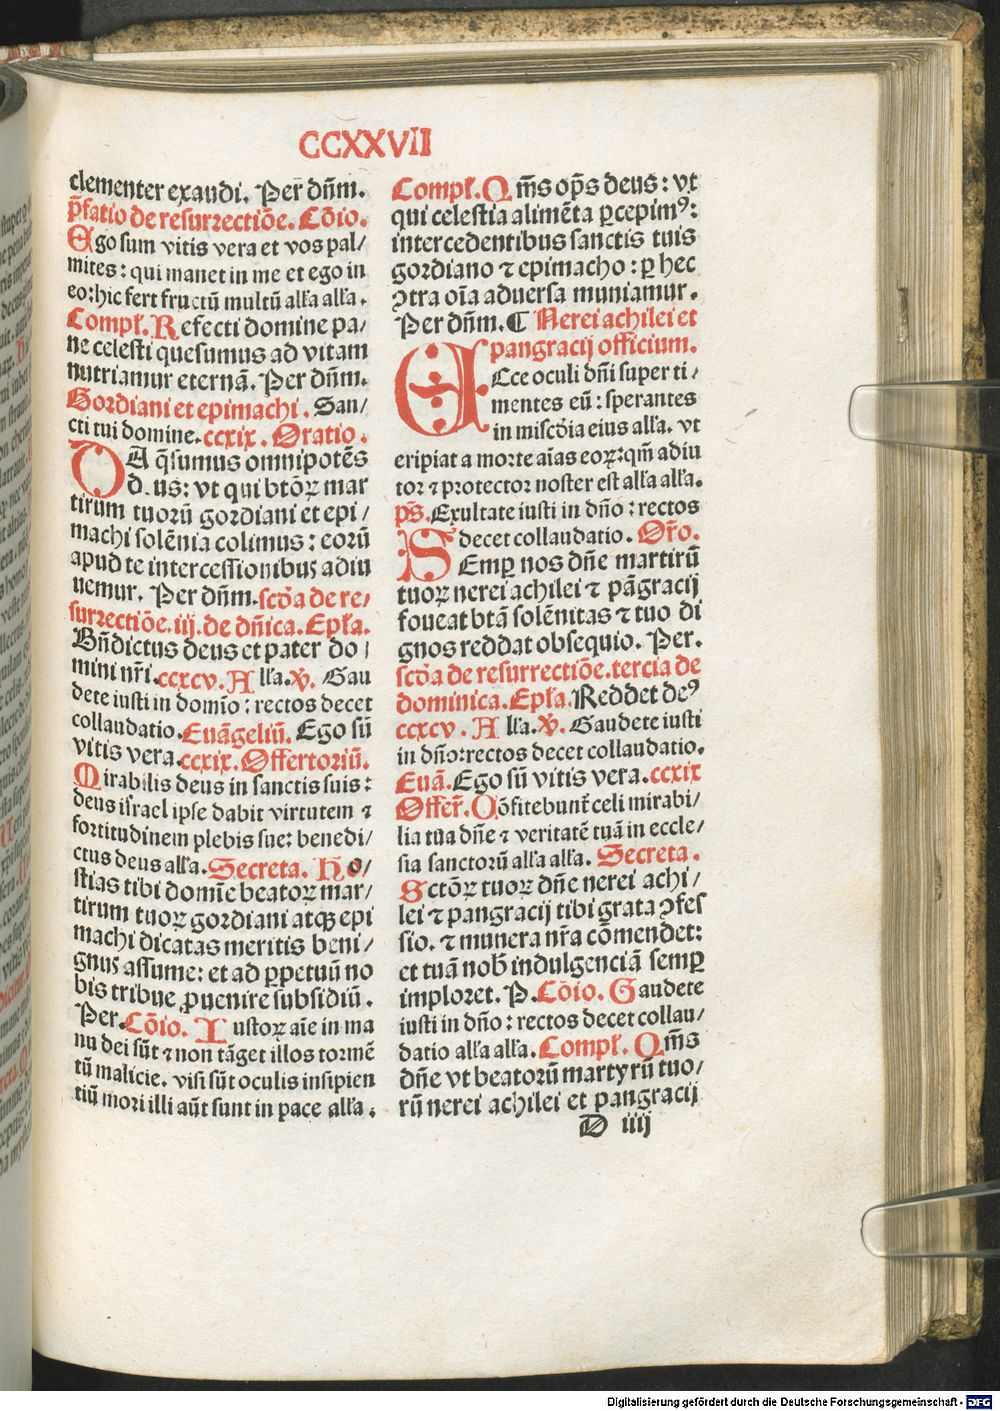 CCXXVII
clementer exaudi. Per dñm.
p̄fatio de resurrectiõe. Cõio.
Ego sum vitis vera et vos pal/
mites: qui manet in me et ego in
eo: hic fert fructũ multũ alľa alľa.
Compľ. Refecti domine pa/
ne celesti quesumus ad vitam
nutriamur eternã. Per dñm.
Gordiani et epimachi. San/
cti tui domine. ccxix. Oratio.
DA q̃sumus omnipotẽs
d.us: vt qui btõꝝ mar
tirum tuorũ gordiani et epi/
machi solẽnia colimus: eorũ
apud te intercessionibus adiu
uemur. Per dñm. scõa de re/
surrectiõe. iij. de dñica. Epľa.
Bñdictus deus et pater do/
mini nr̃i. ccxcv. Alľa. ℣. Gau
dete iusti in domĩo: rectos decet
collaudatio. Euãgeliũ. Ego sũ
vitis vera. ccxix. Offertoriũ.
Mirabilis deus in sanctis suis:
deus isr̃ael ipse dabit virtutem ⁊
fortitudinem plebis sue: benedi/
ctus deus alľa. Secreta. Ho/
stias tibi domĩe beatoꝝ mar/
tirum tuoꝝ gordiani atqꝫ epi
machi dicatas meritis beni/
gnus assume: et ad ꝑpetuũ no
bis tribue ꝓuenire subsidiũ.
Per. Cõio. Iustoꝝ aĩe in ma
nu dei sũt ⁊ non tãget illos tormẽ
tũ malicie. visi sũt oculis insipien
tiũ mori illi aũt sunt in pace alľa.
Compľ. Qm̃s op̃s deus: vt
qui celestia alimẽta ꝑcepimꝰ:
intercedentibus sanctis tuis
gordiano ⁊ epimacho: ꝑ hec
ↄtra oĩa aduersa muniamur.
Per dñm. ¶ Nerei achilei et
pangracij officium.
ECce oculi dñi super ti/
mentes eũ: sperantes
in miscõia eius alľa. vt
eripiat a morte aĩas eoꝝ: qm̃ adiu
tor ⁊ protector noster est alľa alľa.
ps̃. Exultate iusti in dño: rectos
decet collaudatio. Or̃o.
SEmꝑ nos dñe martirũ
tuoꝝ nerei achilei ⁊ pãgracij
foueat btã solẽnitas ⁊ tuo di
gnos reddat obsequio. Per.
scõa de resurrectiõe. tercia de
dominica. Epľa. Reddet deꝰ
ccxcv. Alľa. ℣. Gaudete iusti
in dño: rectos decet collaudatio.
Euã. Ego sũ vitis vera. ccxix
Offer̃. Cõfitebunt̃ celi mirabi/
lia tua dñe ⁊ veritatẽ tuã in eccle/
sia sanctorũ alľa alľa. Secreta.
Sctõꝝ tuoꝝ dñe nerei achi/
lei ⁊ pangracij tibi grata ↄfes
sio. ⁊ munera nr̃a cõmendet:
et tuã nob̃ indulgenciã semꝑ
imploret. P. Cõio. Gaudete
iusti in dño: rectos decet collau/
datio alľa alľa. Compľ. Qm̃s
dñe vt beatorũ martyrũ tuo/
rũ nerei achilei et pangracij
D iiij
Digitalisierung gefördert durch die Deutsche Forschungsgemeinschaft - DFG